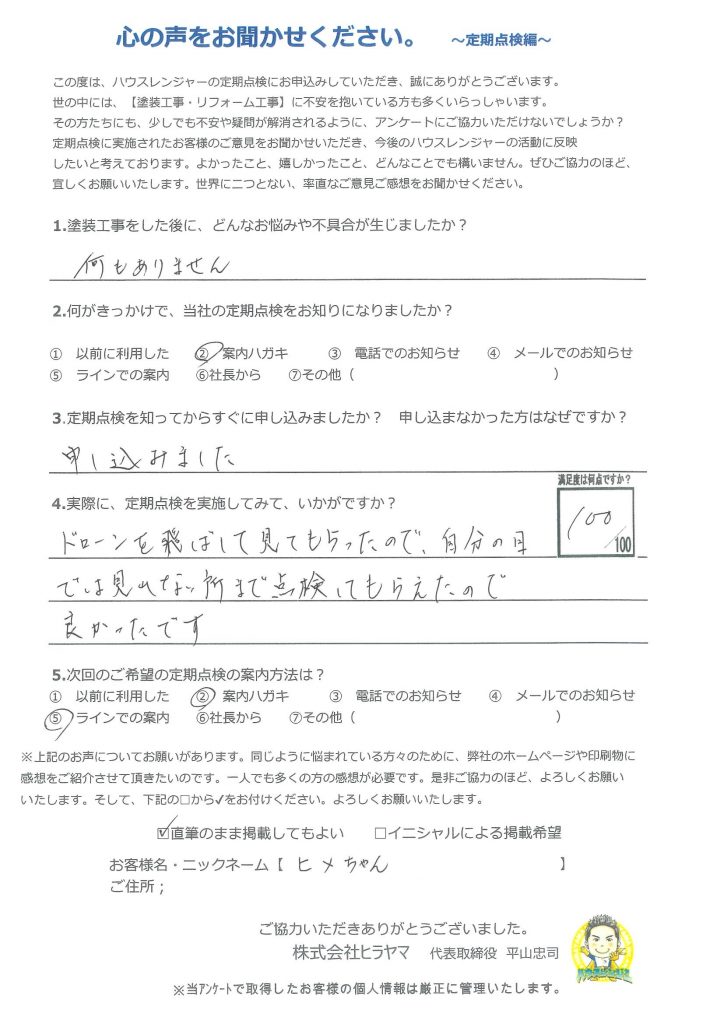 心の声をお聞かせください。 ～定期点検編～
この度は、ハウスレンジャーの定期点検にお申込みしていただき、誠にありがとうございます。
世の中には、【塗装工事・リフォーム工事】に不安を抱いている方も多くいらっしゃいます。
その方たちにも、少しでも不安や疑問が解消されるように、アンケートにご協力いただけないでしょうか？
定期点検に実施されたお客様のご意見をお聞かせいただき、今後のハウスレンジャーの活動に反映
したいと考えております。よかったこと、嬉しかったこと、どんなことでも構いません。ぜひご協力のほど、
宜しくお願いいたします。世界に二つとない、率直なご意見ご感想をお聞かせください。
1.塗装工事をした後に、どんなお悩みや不具合が生じましたか？
何もありません
2.何がきっかけで、当社の定期点検をお知りになりましたか？
① 以前に利用した ② 案内ハガキ ③ 電話でのお知らせ ④ メールでのお知らせ
⑤ ラインでの案内 ⑥社長から ⑦その他（ ）
3.定期点検を知ってからすぐに申し込みましたか？ 申し込まなかった方はなぜですか？
申し込みました
4.実際に、定期点検を実施してみて、いかがですか？
満足度は何点ですか？
100
/100
ドローンを飛ばして見てもらったので、自分の目
では見れない所まで点検してもらえたので
良かったです
5.次回のご希望の定期点検の案内方法は？
① 以前に利用した ② 案内ハガキ ③ 電話でのお知らせ ④ メールでのお知らせ
⑤ ラインでの案内 ⑥社長から ⑦その他（ ）
※上記のお声についてお願いがあります。同じように悩まれている方々のために、弊社のホームページや印刷物に
感想をご紹介させて頂きたいのです。一人でも多くの方の感想が必要です。是非ご協力のほど、よろしくお願い
いたします。そして、下記の□から✓をお付けください。よろしくお願いいたします。
☑直筆のまま掲載してもよい □イニシャルによる掲載希望
お客様名・ニックネーム【 ヒメちゃん 】
ご住所；
ご協力いただきありがとうございました。
株式会社ヒラヤマ 代表取締役 平山忠司
※当アンケートで取得したお客様の個人情報は厳正に管理いたします。